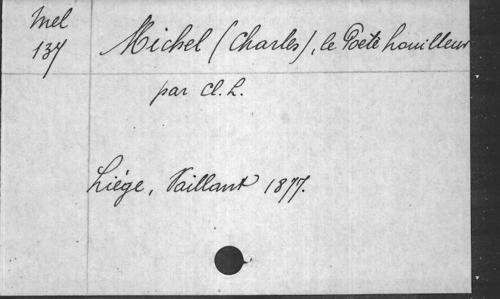 Mel
137
Michel (Charles), le Poète houilleur
par Cl. L.
Liége, Vaillant 1877.